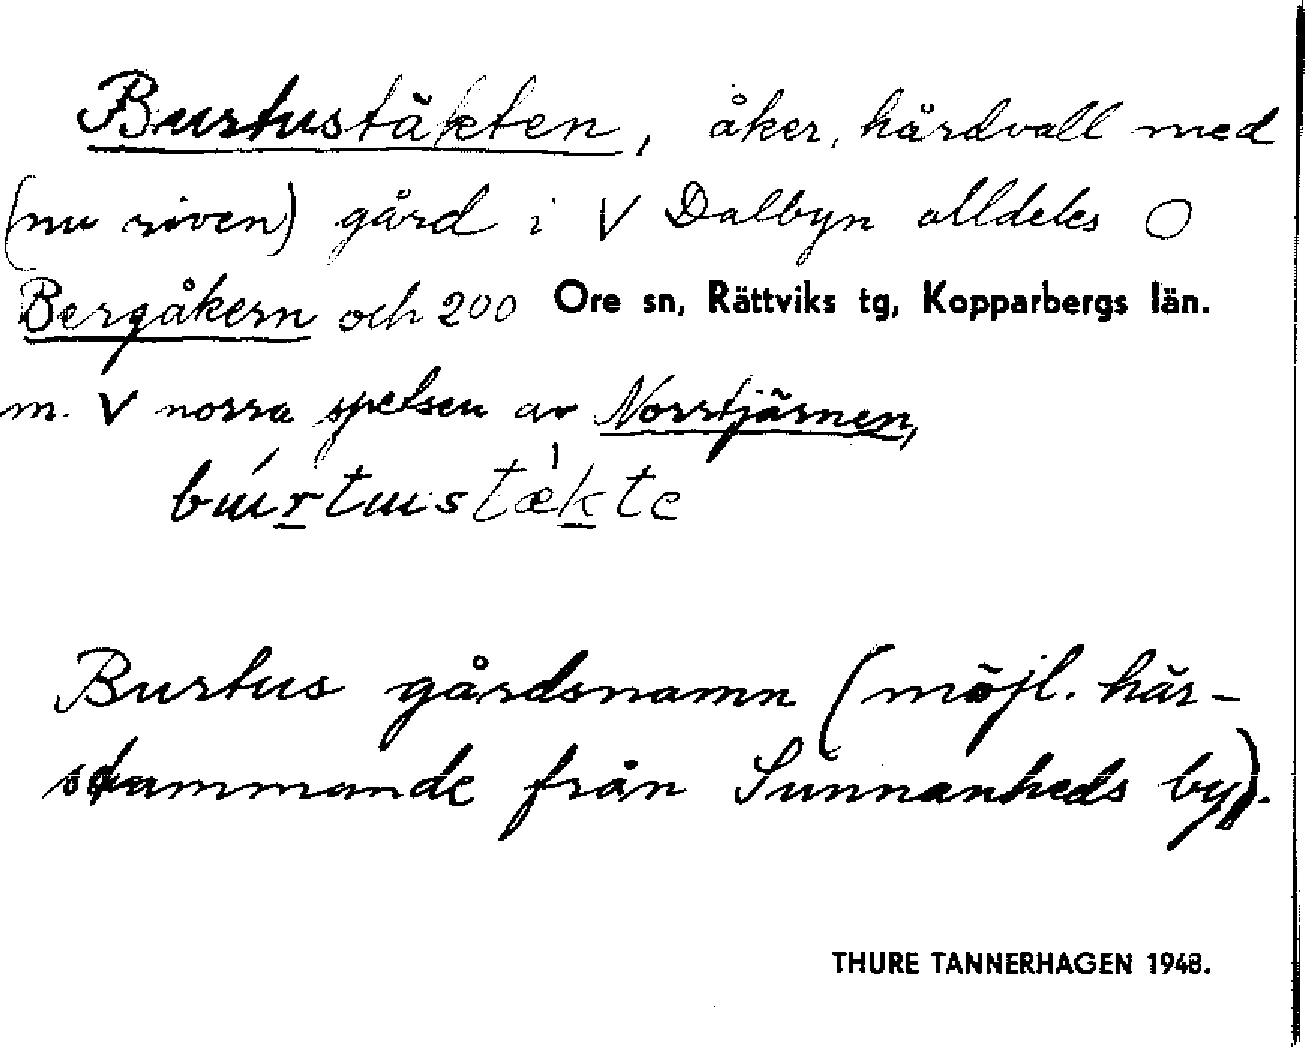 Burtustäkten, åker, hårdvall med
(nu riven) gård i V Dalbyn alldeles O
Bergåkern och 200 Ore sn, Rättviks tg, Kopparbergs län.
m. V norra spetsen av Norrtjärnen,
Burtus gårdsnamn (möjl. här-
stammande från Sunnanheds by).
THURE TANNERHAGEN 1948.